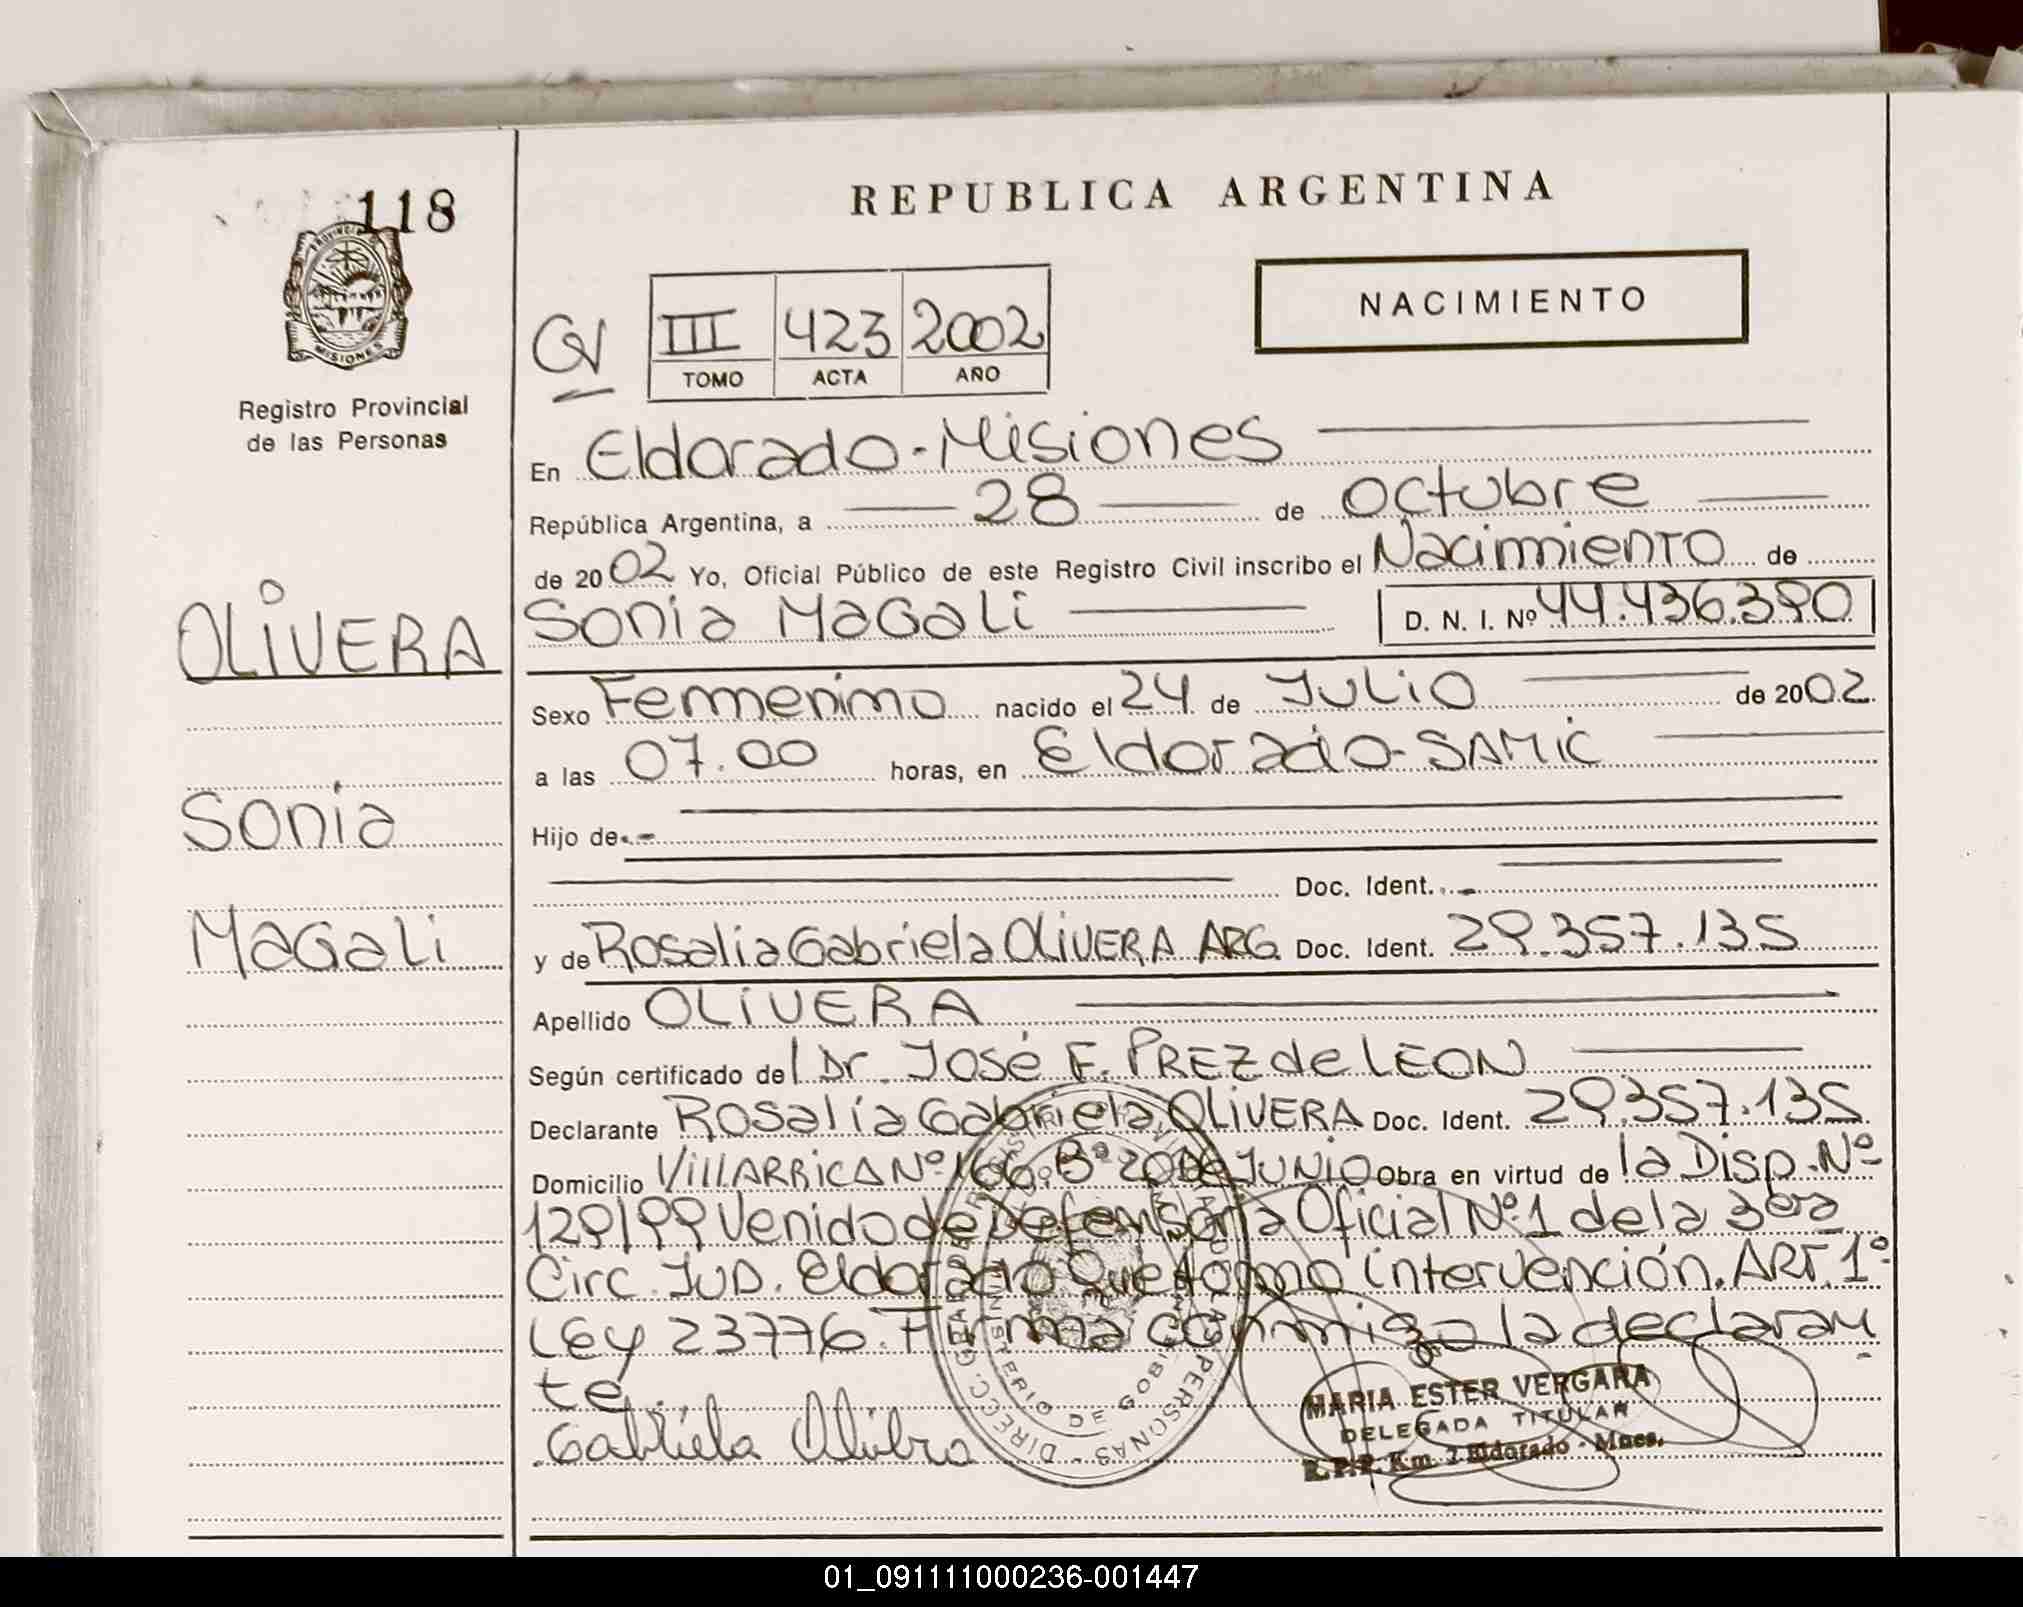 118
REPUBLICA ARGENTINA
NACIMIENTO
III 423 2002
TOMO ACTA AÑO
MISIONES
Registro Provincial
de las Personas
En Eldorado-Misiones
República Argentina, a 28 de octubre
de 2002 Yo, Oficial Público de este Registro Civil inscribo el Nacimiento de
OLIVERA
Sonia Magali D. N. I. Nº 44.436.390
Sexo Femenino nacido el 24 de Julio de 2002.
a las 07.00 horas, en Eldorado-SAMIC
Sonia
Hijo de.-
Doc. Ident..-
Magali
y de Rosalia Gabriela OLIVERA ARG. Doc. Ident. 29.357.135
Apellido OLIVERA
Según certificado del Dr. José F. PREZ de LEON
Declarante Rosalía Gabriela OLIVERA Doc. Ident. 29.357.135
Domicilio VILLARRICA Nº 166. Bº 20 de JUNIO Obra en virtud de la Disp. Nº
129/99 Venido de Defensoria Oficial Nº 1 de la 3era
Circ. JUD. Eldorado Que tomo intervención. ART. 1º
LEY 23776. Firma conmigo la declaran
te.
Gabriela Olivera
MARIA ESTER VERGARA
DELEGADA TITULAR
R.P.P. Km. 2 Eldorado - Mnes.
01_091111000236-001447